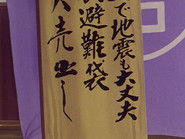 で地震も大丈夫
避難袋
大売出し